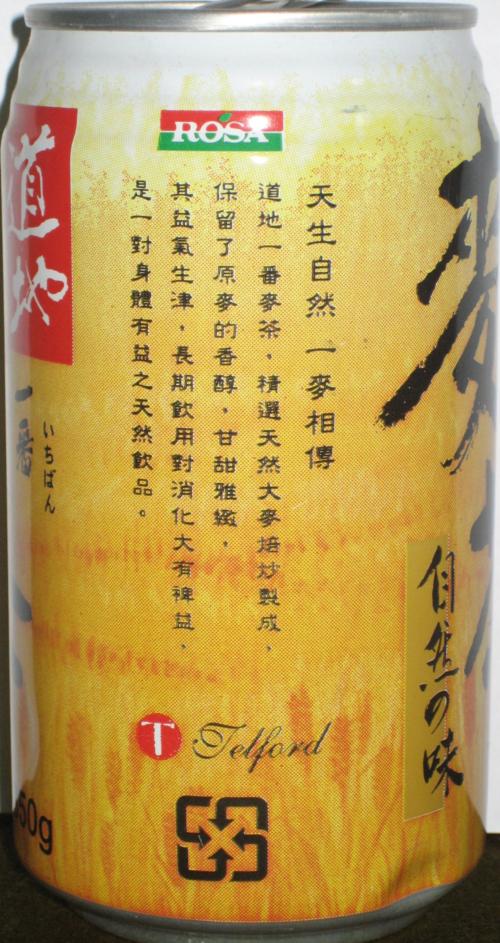 ROSA
天生自然 一麥相傳
道地一番麥茶，精選天然大麥焙炒製成，
保留了原麥的香醇，甘甜雅緻，
其益氣生津，長期飲用對消化大有裨益，
是一對身體有益之天然飲品。
道地
一番
いちばん
麥
自然の味
T Telford
50g